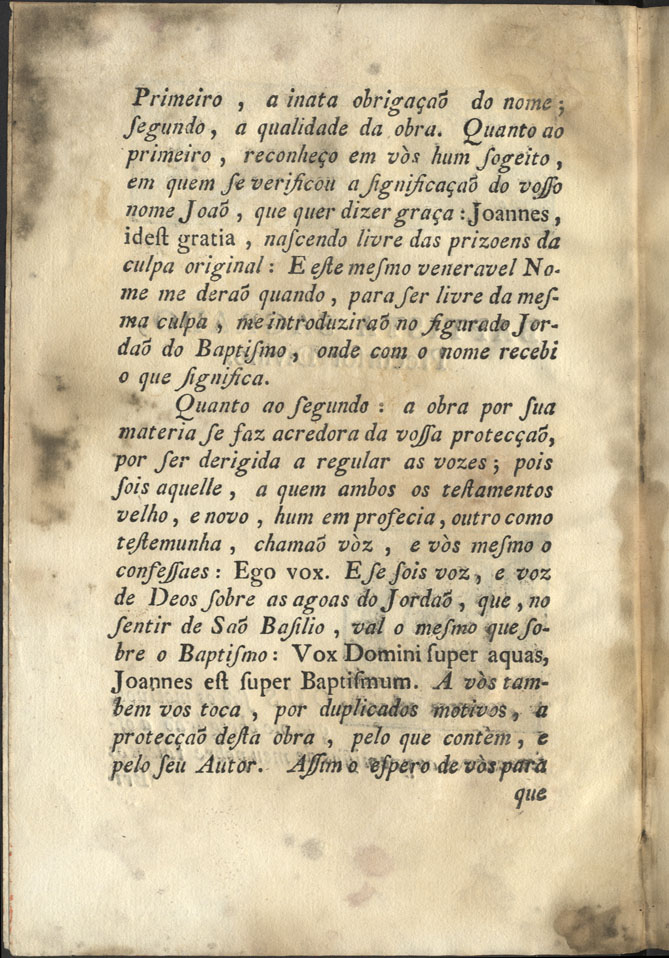 Primeiro , a inata obrigaçaõ do nome ;
ſegundo , a qualidade da obra. Quanto ao
primeiro , reconheço em vòs hum ſogeito ,
em quem ſe verificou a ſignificaçaõ do voſſo
nome Joaõ , que quer dizer graça : Joannes ,
ideſt gratia , naſcendo livre das prizoens da
culpa original : E eſte meſmo veneravel No-
me me deraõ quando , para ſer livre da meſ-
ma culpa , me introduziraõ no figurado Jor-
daõ do Baptiſmo , onde com o nome recebi
o que ſignifica.
Quanto ao ſegundo : a obra por ſua
materia ſe faz acredora da voſſa protecçaõ,
por ſer derigida a regular as vozes ; pois
ſois aquelle , a quem ambos os teſtamentos
velho , e novo , hum em profecia , outro como
teſtemunha , chamaõ vòz , e vòs meſmo o
confeſſaes : Ego vox. E ſe ſois voz , e voz
de Deos ſobre as agoas do Jordaõ , que , no
ſentir de Saõ Baſilio , val o meſmo que ſo-
bre o Baptiſmo : Vox Domini ſuper aquas,
Joannes eſt ſuper Baptiſmum. A vòs tam-
bem vos toca , por duplicados motivos , a
protecçaõ deſta obra , pelo que contèm , e
pelo ſeu Autor. Aſſim o eſpero de vòs para
que